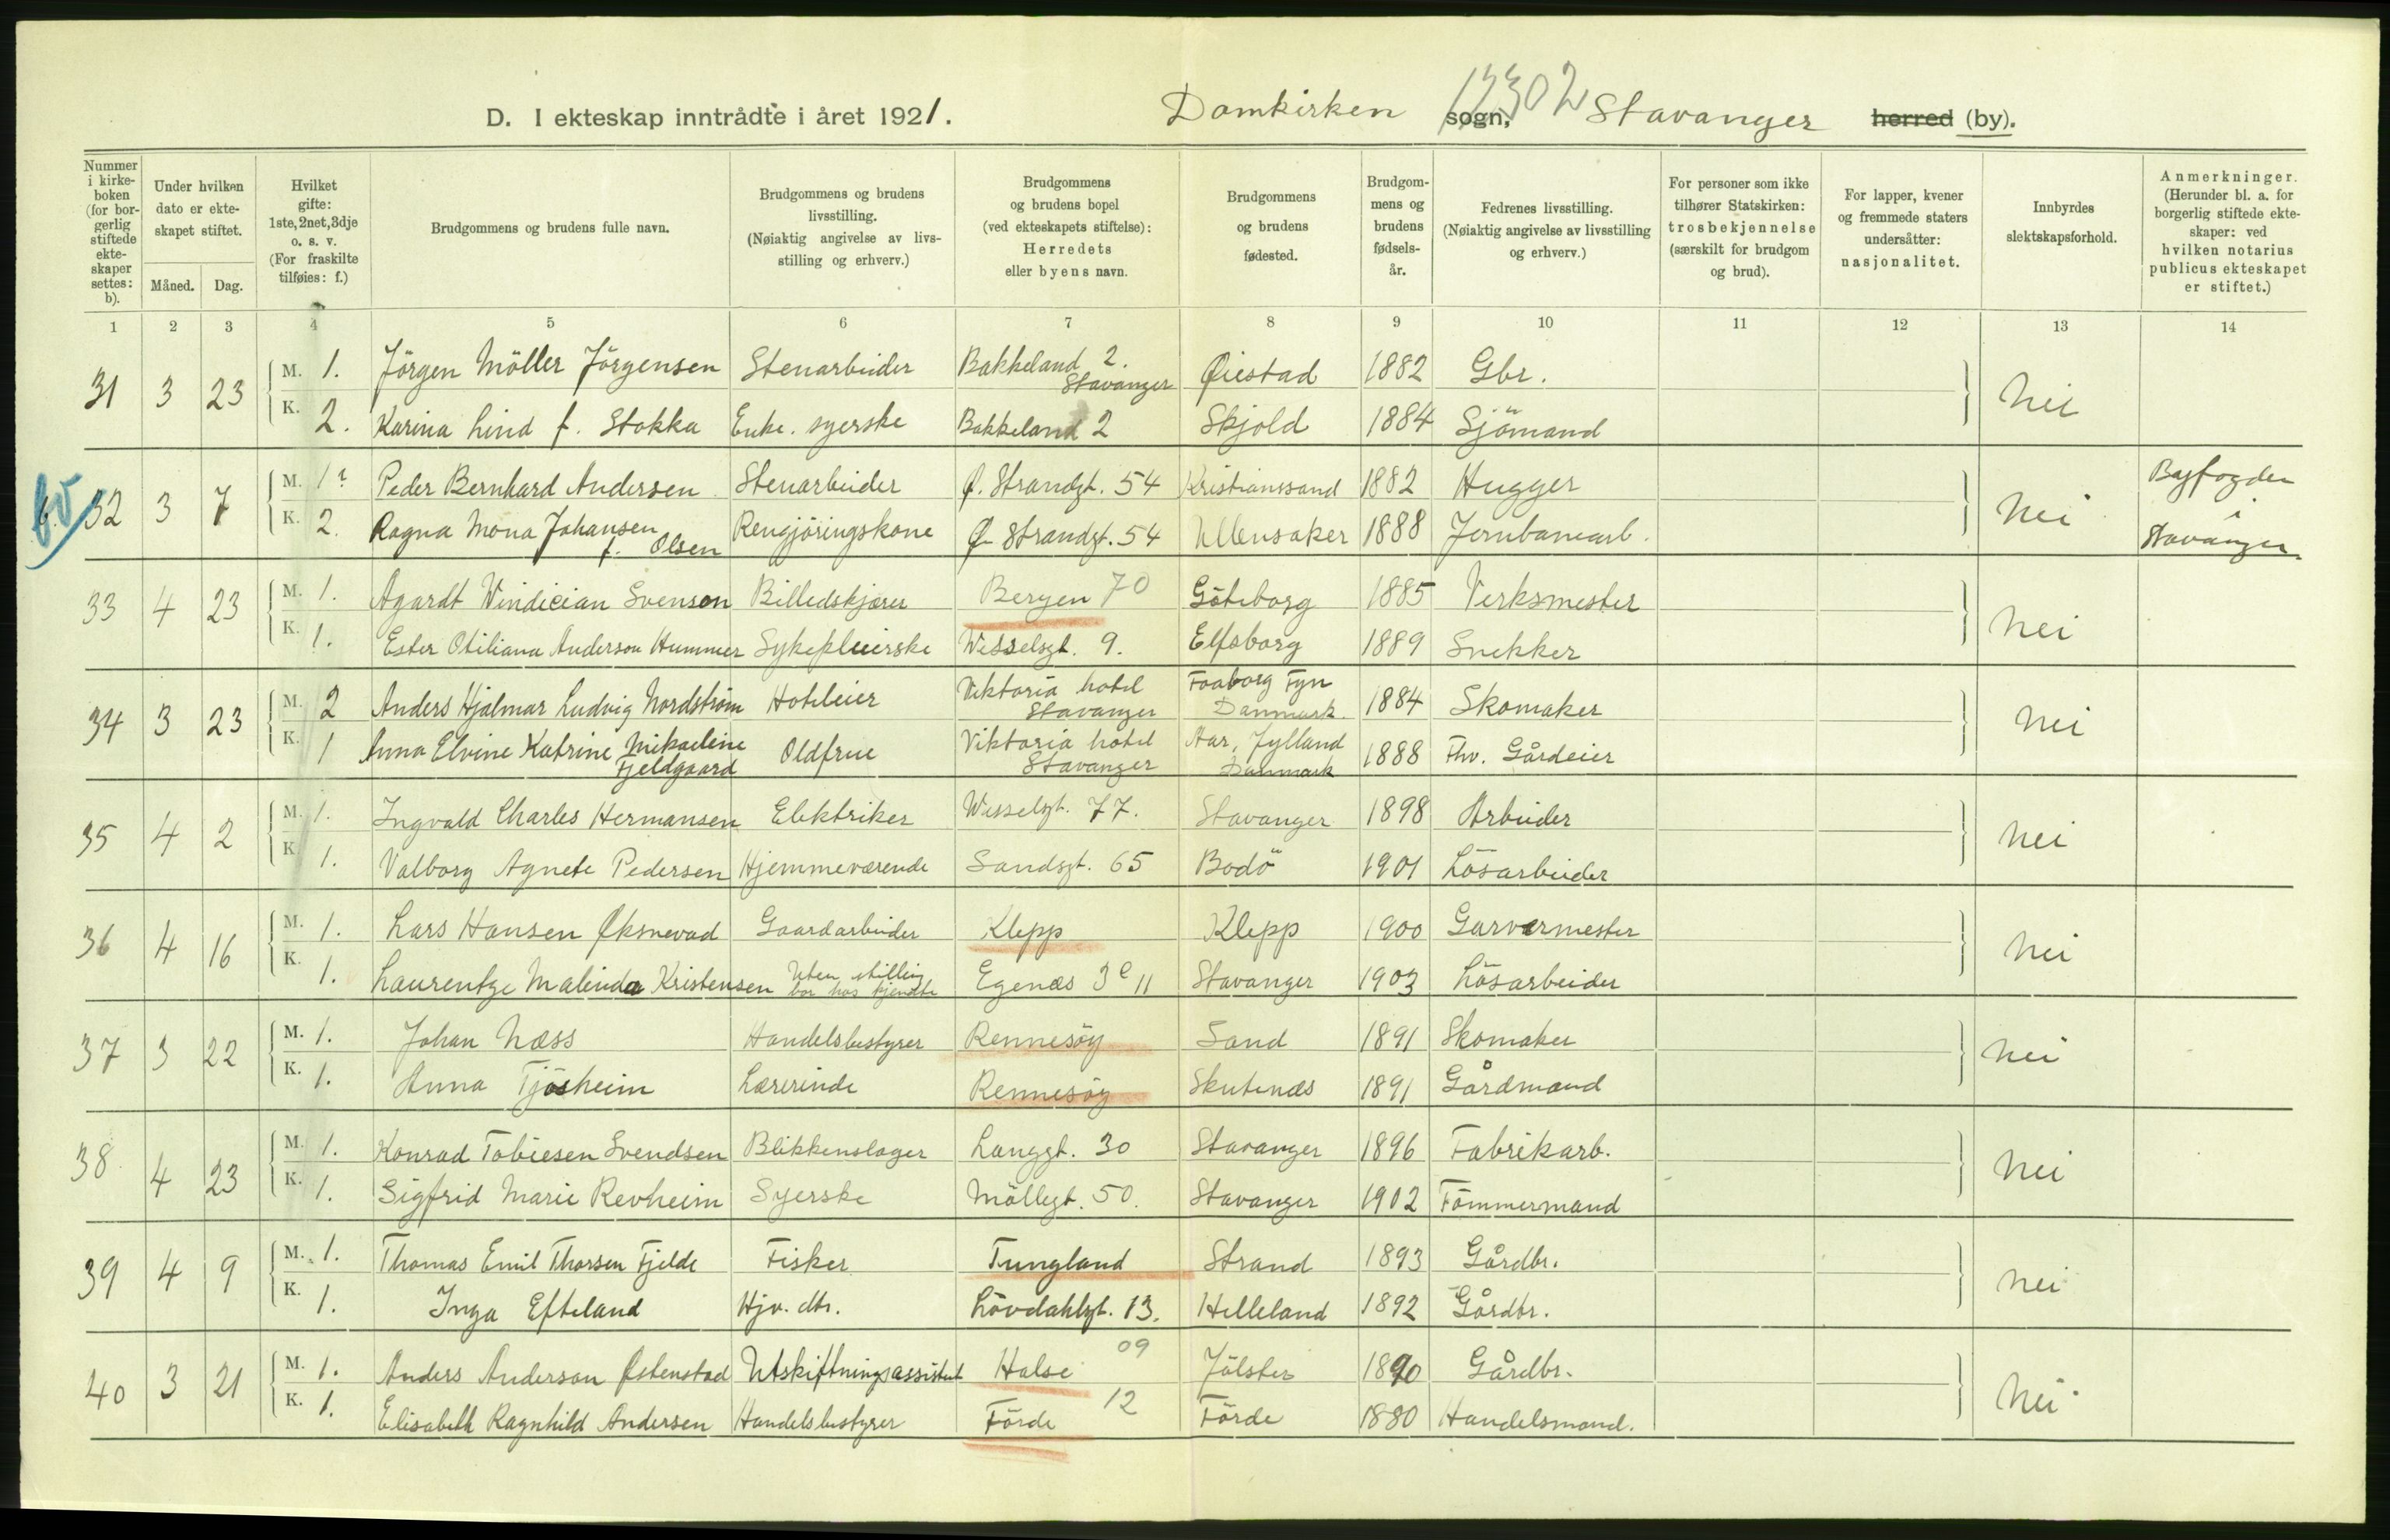 D. I ekteskap inntrådte i året 1921. Domkirken sogn, 12302 Stavanger herred (by).
Nummer i kirkeboken (for borgerlig stiftede ekteskaper settes: b).
Under hvilken dato er ekteskapet stiftet.
Måned. Dag.
Hvilket gifte: 1ste, 2net, 3dje o. s. v. (For fraskilte tilføies: f.)
Brudgommens og brudens fulle navn.
Brudgommens og brudens livsstilling. (Nøiaktig angivelse av livsstilling og erhverv.)
Brudgommens og brudens bopel (ved ekteskapets stiftelse): Herredets eller byens navn.
Brudgommens og brudens fødested.
Brudgommens og brudens fødselsår.
Fedrenes livsstilling. (Nøiaktig angivelse av livsstilling og erhverv.)
For personer som ikke tilhører Statskirken: trosbekjennelse (særskilt for brudgom og brud).
For lapper, kvener og fremmede staters undersåtter: nasjonalitet.
Innbyrdes slektskapsforhold.
Anmerkninger. (Herunder bl. a. for borgerlig stiftede ekteskaper: ved hvilken notarius publicus ekteskapet er stiftet.)
1 2 3 4 5 6 7 8 9 10 11 12 13 14
31 3 23 M. 1. Jörgen Möller Jörgensen Stenarbeider Bakkeland 2. Stavanger Øiestad 1882 Gbr. Nei
K. 2. Karina Lind f. Stokka Enke. syerske Bakkeland 2 Skjold 1884 Sjömand
b. 32 3 7 M. 1? Peder Bernhard Andersen Stenarbeider Ø. Strandgt. 54 Kristianssand 1882 Hugger Nei Byfogden i Stavanger
K. 2. Ragna Mona Johansen f. Olsen Rengjöringskone Ø. Strandgt. 54 Ullensaker 1888 Jernbanearb.
33 4 23 M. 1. Agardt Windician Svenson Billedskjærer Bergen 70 Göteborg 1885 Verksmester Nei
K. 1. Ester Otiliana Anderson Hummer Sykepleierske Wesselsgt. 9. Elfsborg 1889 Snekker
34 3 23 M. 2 Anders Hjalmar Ludvig Nordström Hoteleier Viktoria hotel Stavanger Faaborg Fyn Danmark. 1884 Skomaker Nei
K. 1 Anna Elvine Katrine Mikaeline Fjeldgaard Oldfrue Viktoria hotel Stavanger Aar, Jylland Danmark 1888 Fhv. Gårdeier
35 4 2 M. 1. Ingvald Charles Hermansen Elektriker Wesselgt. 77. Stavanger 1898 Arbeider Nei
K. 1. Valborg Agnete Pedersen Hjemmeværende Sandsgt. 65 Bodö 1901 Lösarbeider
36 4 16 M. 1. Lars Hansen Øksnevad Gaardarbeider Klepp Klepp 1900 Garvermester Nei
K. 1. Laurentze Malinda Kristensen Uten stilling bor hos kjendte Egenæs 3e 11 Stavanger 1903 Lösarbeider
37 3 22 M. 1. Johan Næss Handelsbestyrer Rennesöy Sand 1891 Skomaker Nei
K. 1. Anna Tjösheim Lærerinde Rennesöy Skutenæs 1891 Gårdmand
38 4 23 M. 1. Konrad Tobiesen Svendsen Blikkenslager Langgt. 30 Stavanger 1896 Fabrikarb. Nei
K. 1. Sigfrid Marie Revheim Syerske Möllegt. 50. Stavanger 1902 Tömmermand
39 4 9 M. 1. Thomas Emil Thorsen Fjelde Fisker Tungland Strand 1893 Gårdbr. Nei
K. 1. Inga Efteland Hjv. dtr. Lövdahlsgt. 13. Helleland 1892 Gårdbr.
40 3 21 M. 1. Anders Anderson Østenstad Utskiftningsassistent Halse 09 Jölster 1890 Gårdbr. Nei
K. 1. Elisabeth Ragnhild Andersen Handelsbestyrer Förde 12 Förde 1880 Handelsmand.